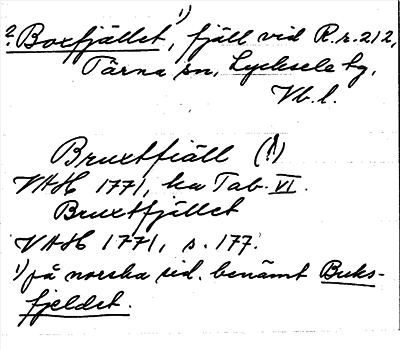 ? Boxfjället, ¹) fjäll vid R.r. 212,
Tärna sn, Lycksele tg,
Vb. l.
Bruxtfiäll (!)
VAH 1771, ka Tab. VI.
Bruxtfjället
VAH 1771, s. 177.
¹) på norska sid. benämt Buks-
fjeldet.